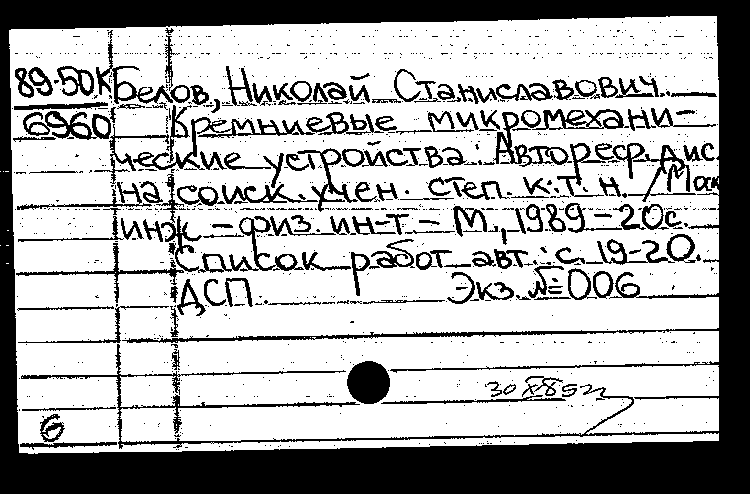 89-50К Белов, Николай Станиславович.
6960 Кремниевые микромехани-
ческие устройства: Автореф. дис.
на соиск. учен. степ. к.т.н. / Моск
инж-физ. ин-т - М., 1989 - 20с.
Список работ авт.: с. 19-20.
ДСП. Экз. №006
6